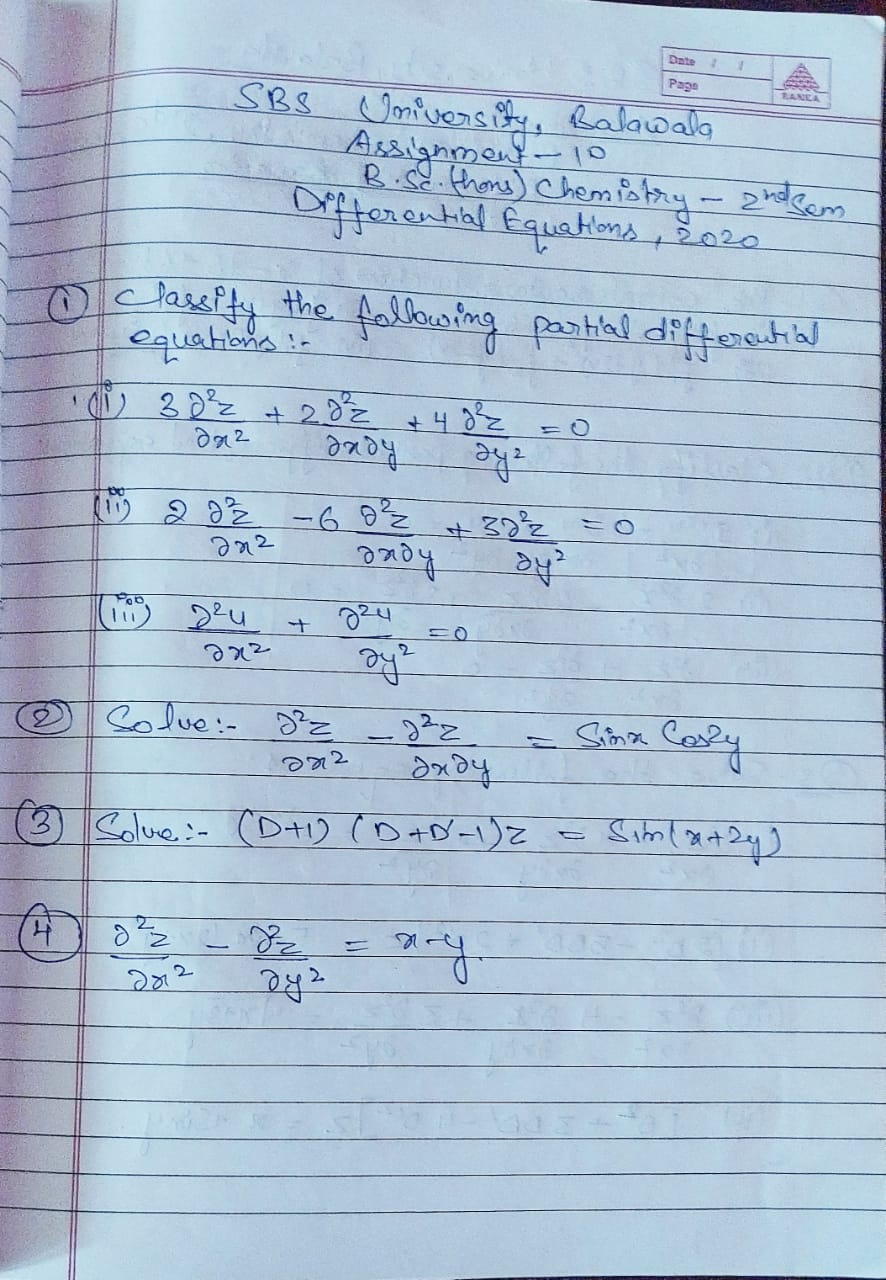 Date / /
Page
RANKA
SBS University, Balawala
Assignment - 10
B.Sc. (hons) Chemistry - 2nd Sem
Differential Equations, 2020
① Classify the following partial differential
equations:-
(i) 3 ∂²z/∂x² + 2 ∂²z/∂x∂y + 4 ∂²z/∂y² = 0
(ii) 2 ∂²z/∂x² - 6 ∂²z/∂x∂y + 3 ∂²z/∂y² = 0
(iii) ∂²u/∂x² + ∂²u/∂y² = 0
② Solve:- ∂²z/∂x² - ∂²z/∂x∂y = Sinx Cos2y
③ Solve:- (D+1) (D+D'-1)z = Sin(x+2y)
④ ∂²z/∂x² - ∂²z/∂y² = x-y.